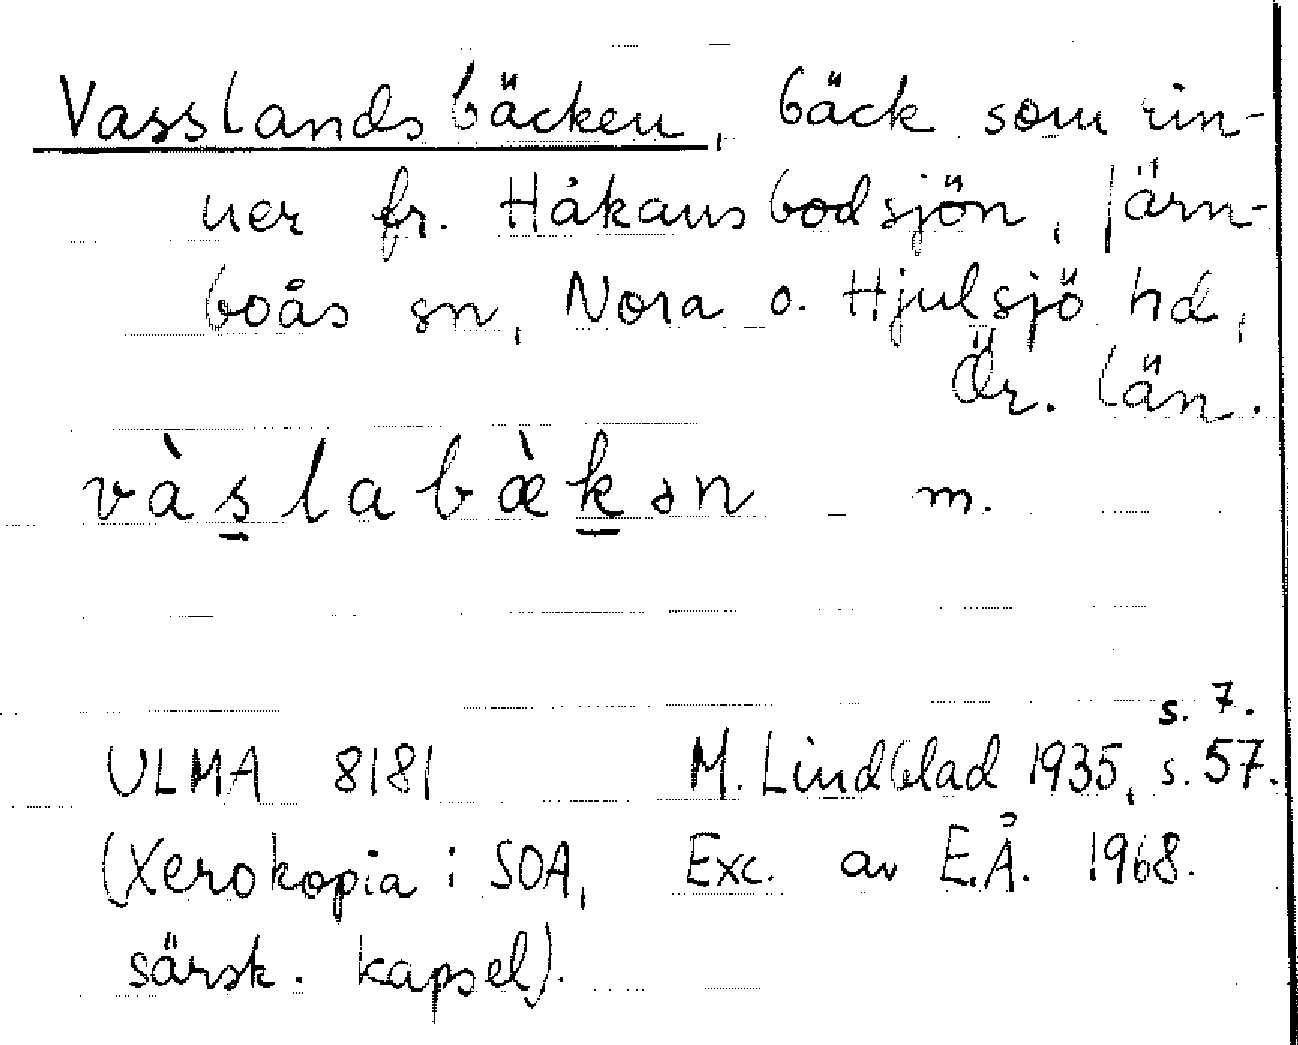 Vasslandsbäcken, bäck som rin-
ner fr. Håkansbodsjön, Järn-
boås sn, Nora o. Hjulsjö hd,
Ör. län.
vàs̱labæ̀ḵən m.
s. 7.
ULMA 8181 M. Lindblad 1935, s. 57.
(Xerokopia i SOA, Exc. av E.Å. 1968.
särsk. kapsel).